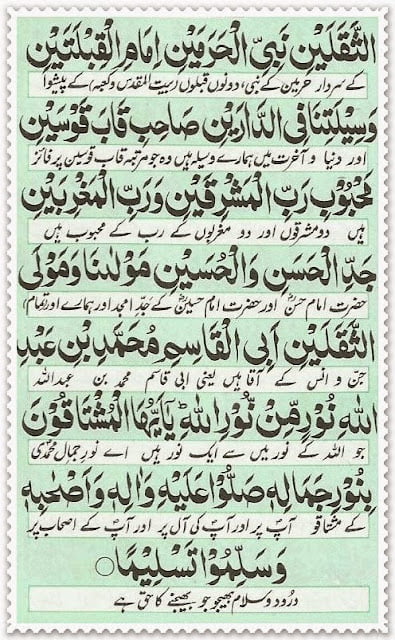 الثَّقَلَيْنِ نَبِيِّ الْحَرَمَيْنِ اِمَامِ الْقِبْلَتَيْنِ
کے سردار حرمین کے نبی دونوں قبلوں (بیت المقدس و کعبہ) کے پیشوا
وَسِيْلَتِنَا فِی الدَّارَيْنِ صَاحِبِ قَابَ قَوْسَيْنِ
اور دنیا و آخرت میں ہمارے وسیلہ ہیں وہ جو مرتبہ قاب قوسین پر فائز
مَحْبُوْبِ رَبِّ الْمَشْرِقَيْنِ وَرَبِّ الْمَغْرِبَيْنِ
ہیں دو مشرقوں اور دو مغربوں کے رب کے محبوب ہیں
جَدِّ الْحَسَنِ وَالْحُسَيْنِ مَوْلٰىنَا وَمَوْلَى
حضرت امام حسنؓ اور حضرت امام حسینؓ کے جد امجد اور ہمارے اور (تمام)
الثَّقَلَيْنِ اَبِی الْقَاسِمِ مُحَمَّدِ بْنِ عَبْدِ
جن و انس کے آقا ہیں یعنی ابی قاسم محمد بن عبداللہ
اللّٰهِ نُوْرٍ مِّنْ نُّوْرِ اللّٰهِ ط يٰاَيُّهَا الْمُشْتَاقُوْنَ
جو اللہ کے نور میں سے ایک نور ہیں اے نور جمال محمدی
بِنُوْرِ جَمَالِهٖ صَلُّوْا عَلَيْهِ وَاٰلِهٖ وَاَصْحٰبِهٖ
کے مشتاقو آپؐ پر اور آپؐ کی آل پر اور آپؐ کے اصحاب پر
وَسَلِّمُوْا تَسْلِيْمًا ○
درود و سلام بھیجو جو بھیجنے کا حق ہے